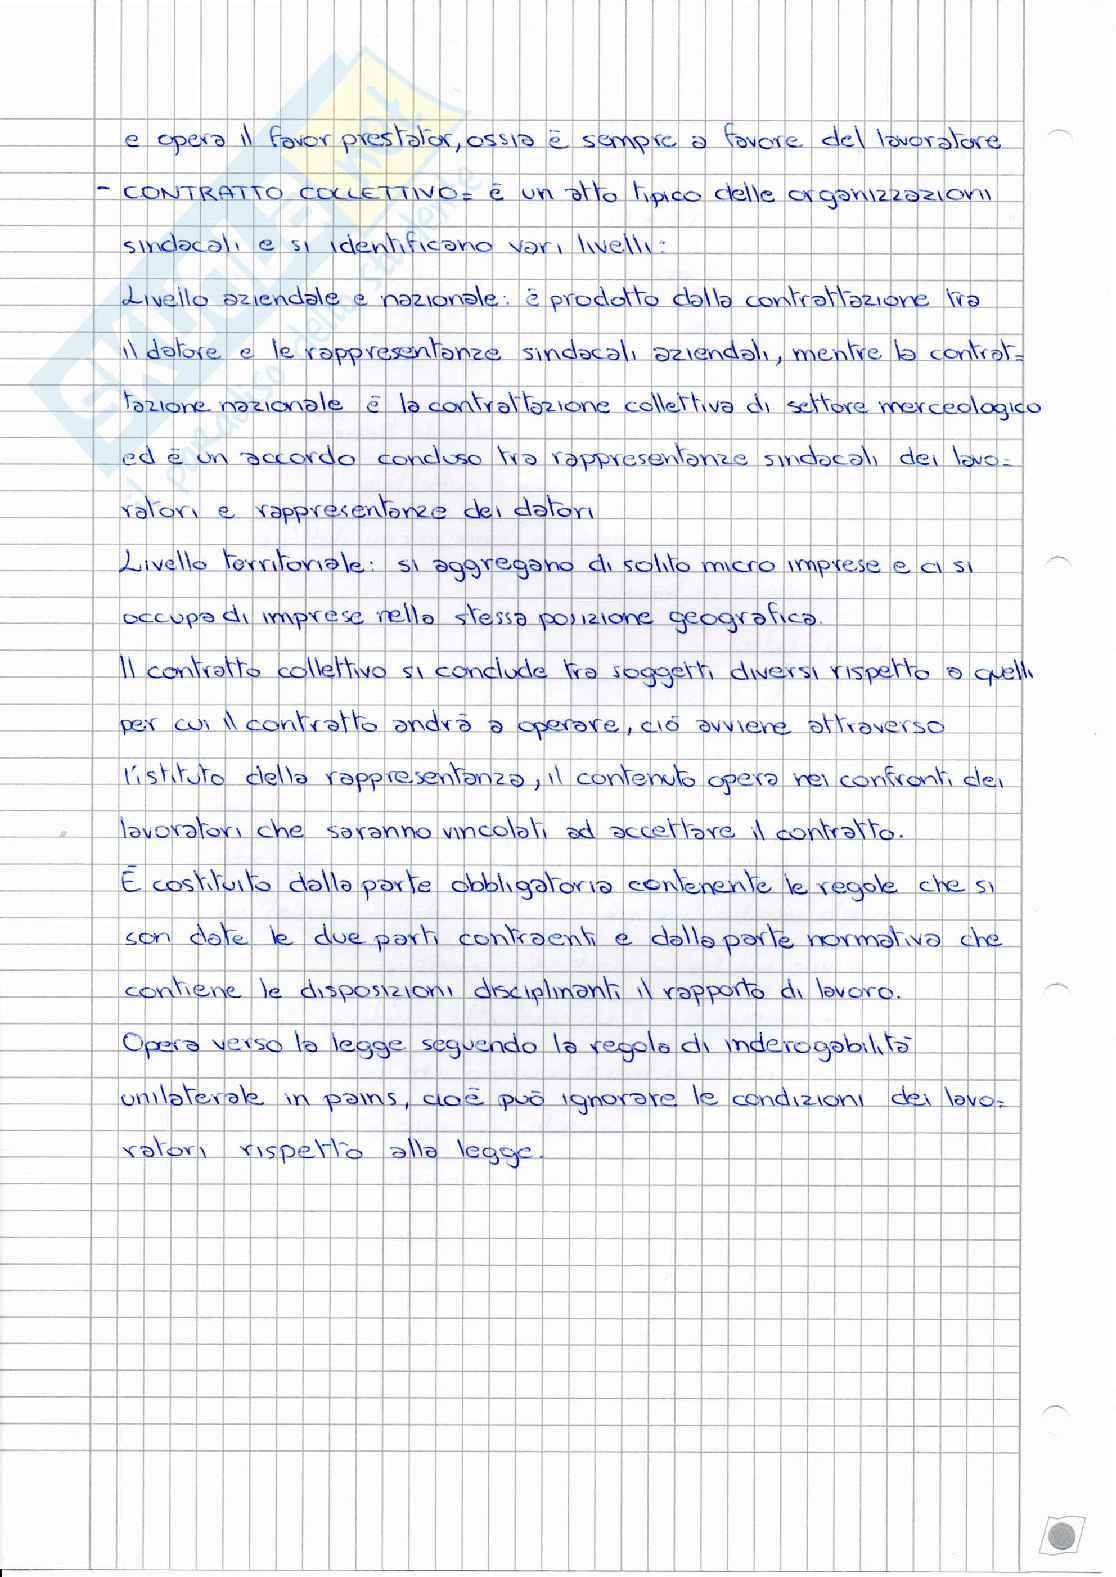 e opera il favor prestator, ossia è sempre a favore del lavoratore
- CONTRATTO COLLETTIVO= è un atto tipico delle organizzazioni
sindacali e si identificano vari livelli:
Livello aziendale e nazionale: è prodotto dalla contrattazione tra
il datore e le rappresentanze sindacali aziendali, mentre la contrat=
tazione nazionale è la contrattazione collettiva di settore merceologico
ed è un accordo concluso tra rappresentanze sindacali dei lavo=
ratori e rappresentanze dei datori
Livello territoriale: si aggregano di solito micro imprese e ci si
occupa di imprese nella stessa posizione geografica.
Il contratto collettivo si conclude tra soggetti diversi rispetto a quelli
per cui il contratto andrà a operare, ciò avviene attraverso
l'istituto della rappresentanza, il contenuto opera nei confronti dei
lavoratori che saranno vincolati ad accettare il contratto.
È costituito dalla parte obbligatoria contenente le regole che si
son date le due parti contraenti e dalla parte normativa che
contiene le disposizioni disciplinanti il rapporto di lavoro.
Opera verso la legge seguendo la regola di inderogabilità
unilaterale in pains, cioè può ignorare le condizioni dei lavo=
ratori rispetto alla legge.
SKUOLA.net
il paradiso dello studente